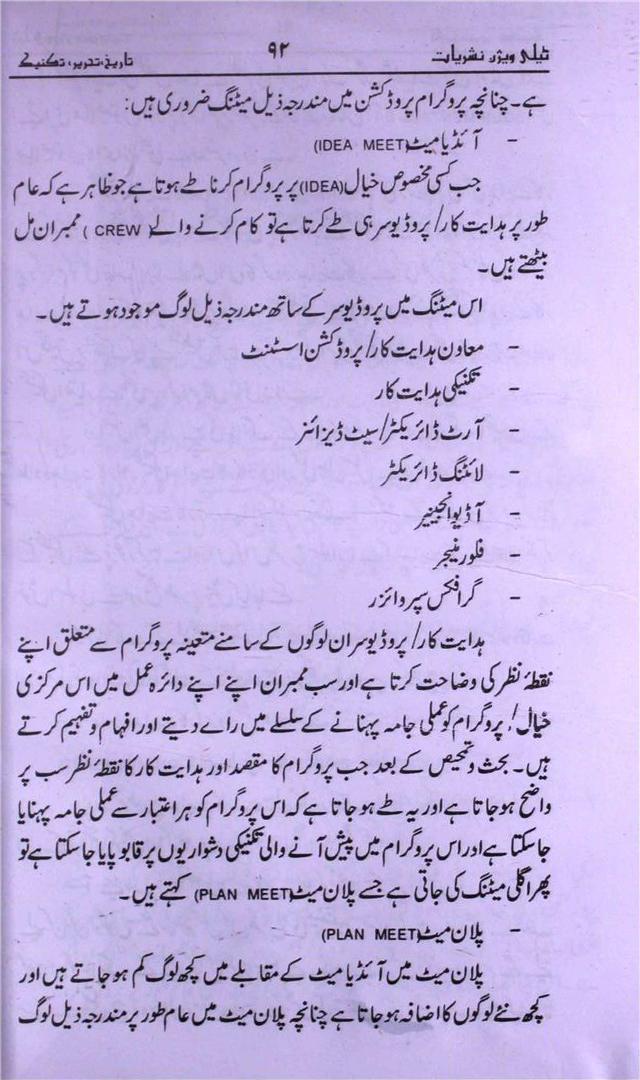 ٹیلی ویژن نشریات ۹۲ تاریخ، تحریر، تکنیک
ہے۔ چنانچہ پروگرام پروڈکشن میں مندرجہ ذیل میٹنگ ضروری ہیں:
- آئڈیا میٹ (IDEA MEET)
جب کسی مخصوص خیال (IDEA) پر پروگرام کرنا طے ہوتا ہے جو ظاہر ہے کہ عام
طور پر ہدایت کار/ پروڈیوسر ہی طے کرتا ہے تو کام کرنے والے (CREW) ممبران مل
بیٹھتے ہیں۔
اس میٹنگ میں پروڈیوسر کے ساتھ مندرجہ ذیل لوگ موجود ہوتے ہیں۔
- معاون ہدایت کار/ پروڈکشن اسسٹنٹ
- تکنیکی ہدایت کار
- آرٹ ڈائریکٹر/سیٹ ڈیزائنر
- لائٹنگ ڈائریکٹر
- آڈیو انجینیر
- فلور منیجر
- گرافکس سپروائزر
ہدایت کار/ پروڈیوسر ان لوگوں کے سامنے متعینہ پروگرام سے متعلق اپنے
نقطۂ نظر کی وضاحت کرتا ہے اور سب ممبران اپنے اپنے دائرہ عمل میں اس مرکزی
خیال/ پروگرام کو عملی جامہ پہنانے کے سلسلے میں رائے دیتے اور افہام و تفہیم کرتے
ہیں۔ بحث و تمحیص کے بعد جب پروگرام کا مقصد اور ہدایت کار کا نقطۂ نظر سب پر
واضح ہو جاتا ہے اور یہ طے ہو جاتا ہے کہ اس پروگرام کو ہر اعتبار سے عملی جامہ پہنایا
جا سکتا ہے اور اس پروگرام میں پیش آنے والی تکنیکی دشواریوں پر قابو پایا جا سکتا ہے تو
پھر اگلی میٹنگ کی جاتی ہے جسے پلان میٹ (PLAN MEET) کہتے ہیں۔
- پلان میٹ (PLAN MEET)
پلان میٹ میں آئڈیا میٹ کے مقابلے میں کچھ لوگ کم ہو جاتے ہیں اور
کچھ نئے لوگوں کا اضافہ ہو جاتا ہے چنانچہ پلان میٹ میں عام طور پر مندرجہ ذیل لوگ